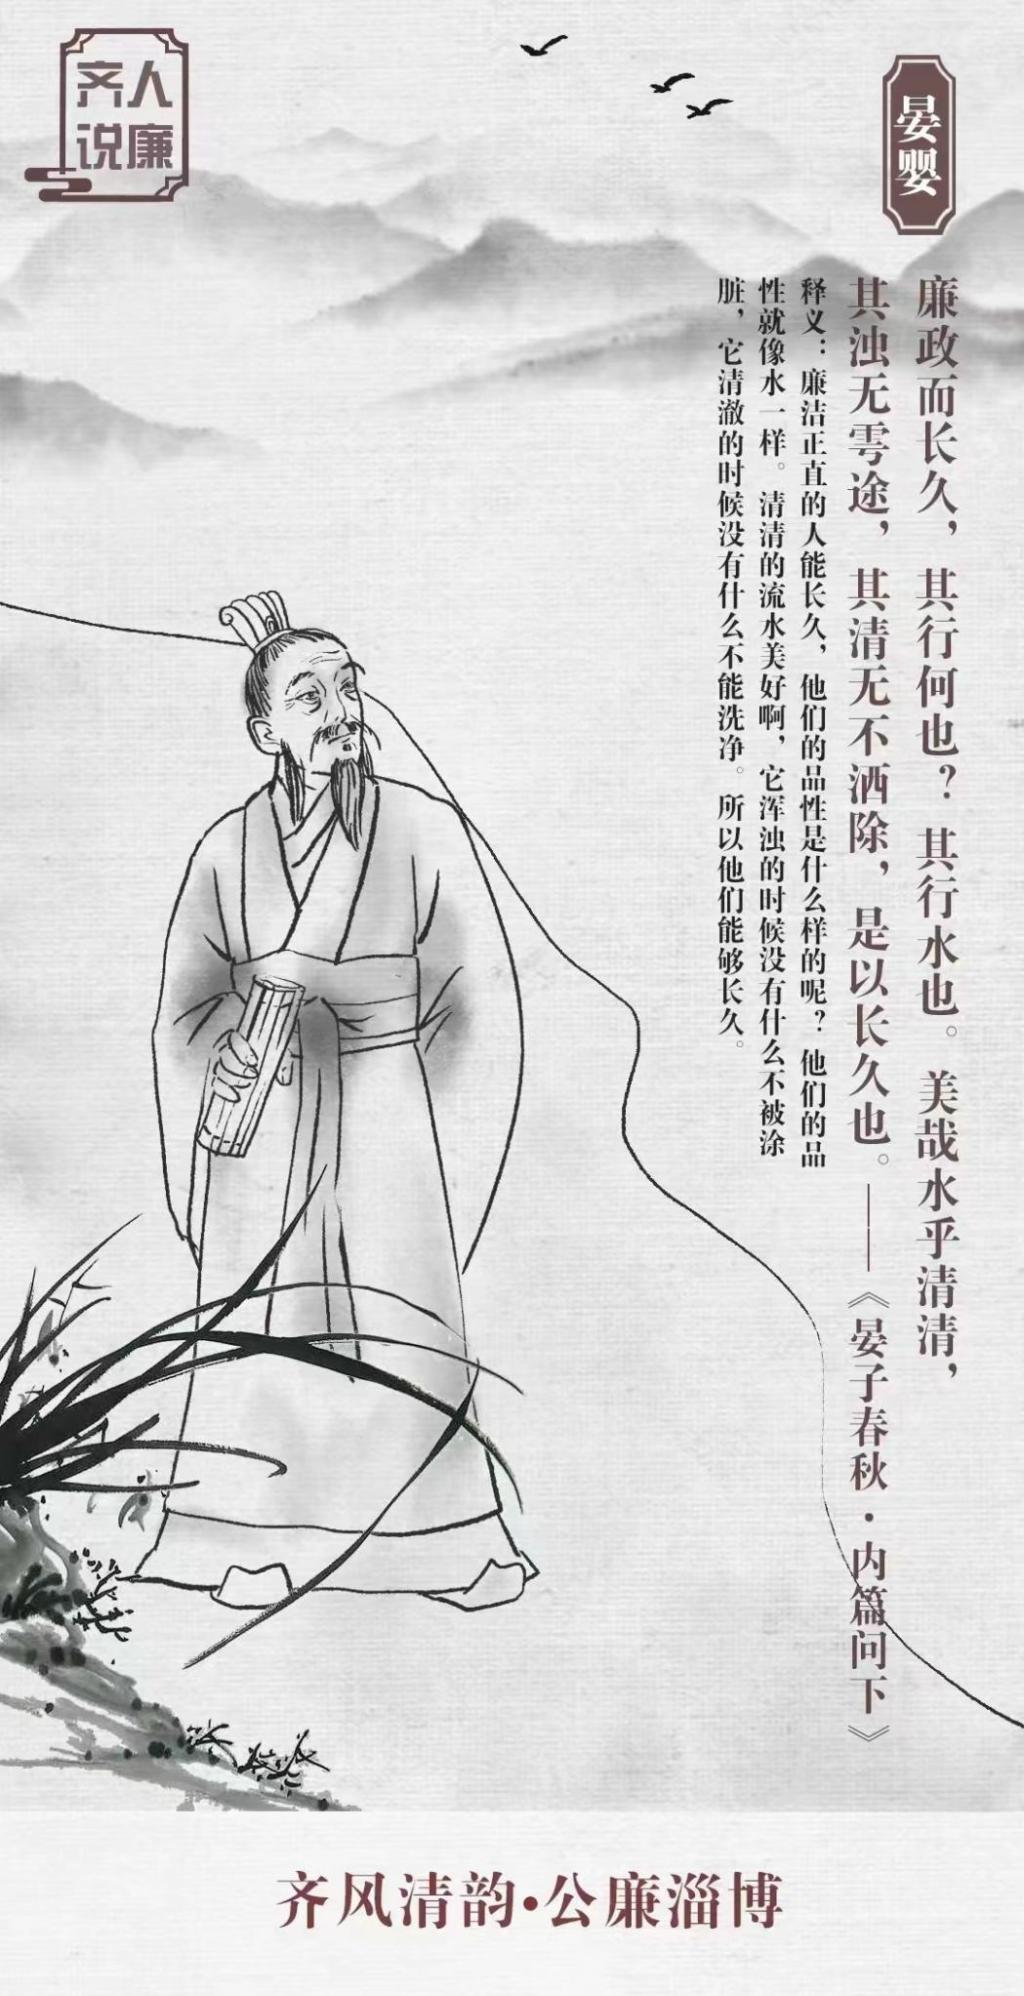 齐人
说廉
晏婴
廉政而长久，其行何也？其行水也。美哉水乎清清，
其浊无雩途，其清无不洒除，是以长久也。——《晏子春秋·内篇问下》
释义：廉洁正直的人能长久，他们的品性是什么样的呢？他们的品
性就像水一样。清清的流水美好啊，它浑浊的时候没有什么不被涂
脏，它清澈的时候没有什么不能洗净。所以他们能够长久。
齐风清韵·公廉淄博